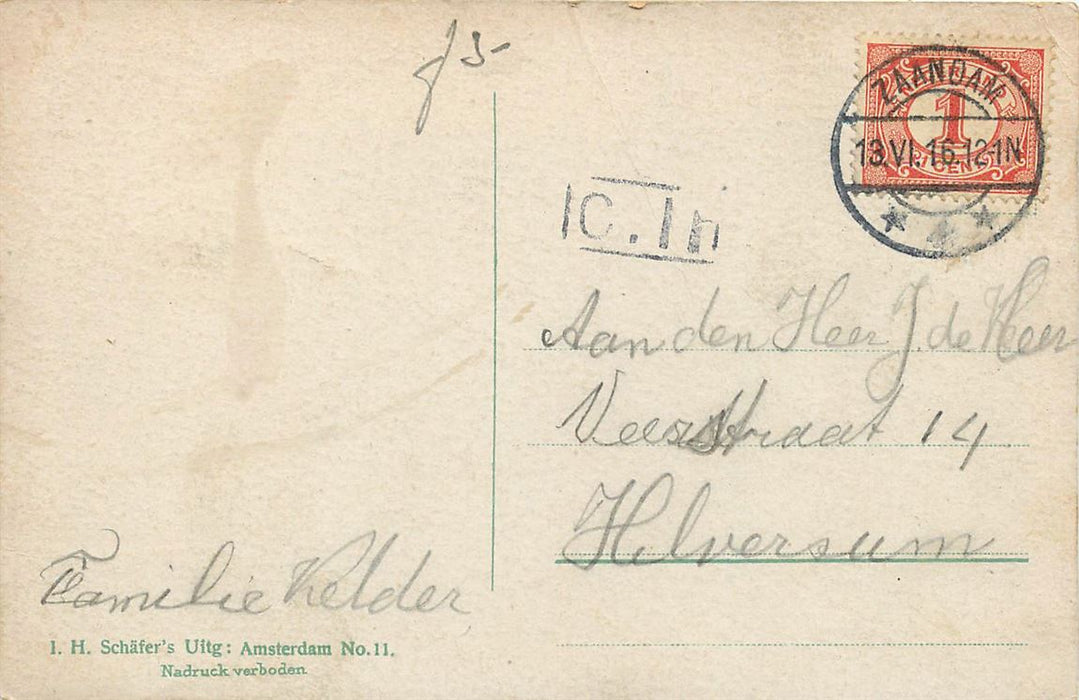 f 5-
ZAANDAM
1
13.VI.16.12-1N
CENT
C.In
Aan den Heer J. de Heer
Veerstraat 14
Hilversum
Familie Kelder
I. H. Schäfer's Uitg: Amsterdam No.11.
Nadruck verboden